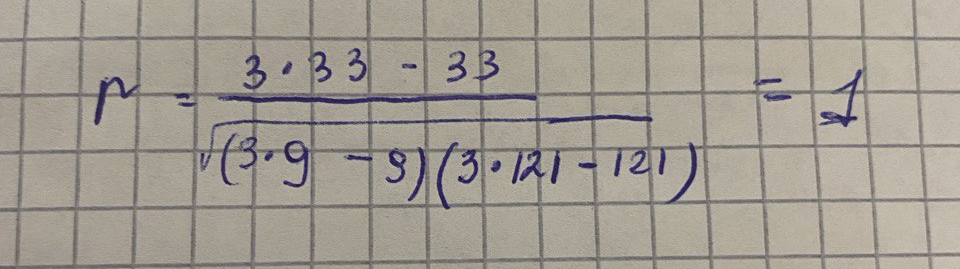 r = (3·33 - 33) / √((3·9 - 9)(3·121 - 121)) = 1